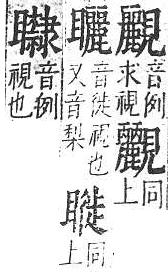 䚕
音例
求視
同
上
矖
音徙視也
又音梨
同
上
音例
視也